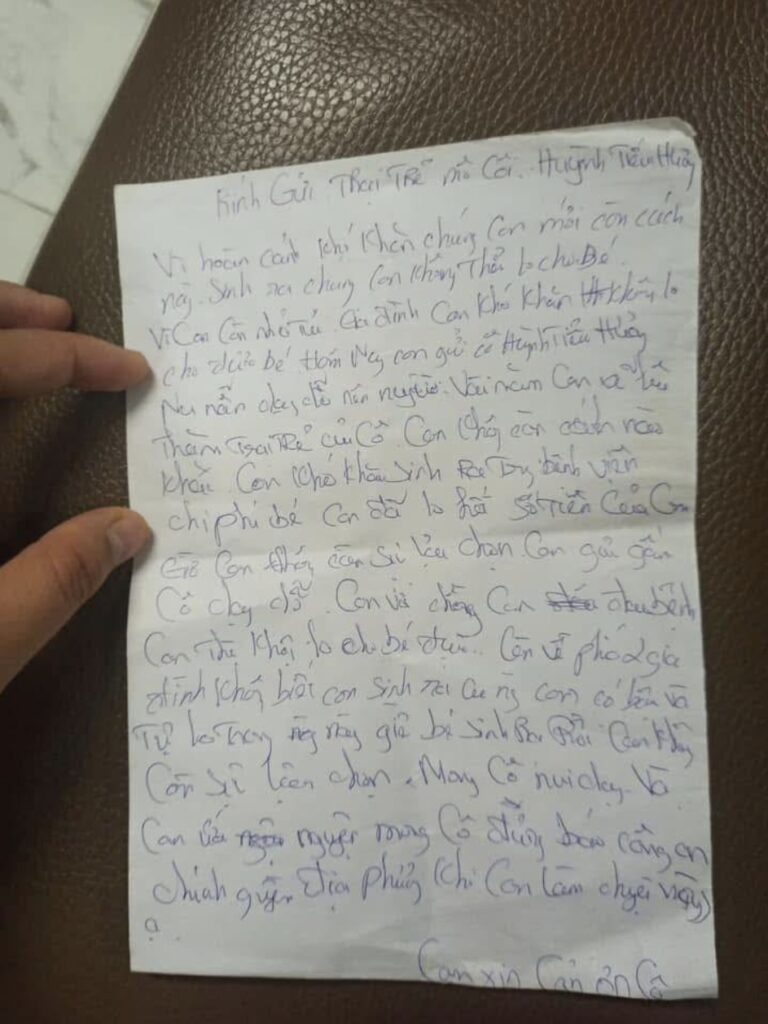 Kính Gửi Trại Trẻ mồ Côi. Huỳnh Tiểu Hường
Vì hoàn cảnh khó Khăn chúng Con mới còn cách
này. Sinh ra chúng Con không Thể lo cho Bé
Vì Con Còn nhỏ Gia đình Con Khó Khăn không lo
cho đứa bé Hôm Nay con gửi cô Huỳnh Tiểu Hường
dạy dỗ nên người. Vài năm Con về
Thăm Trại Trẻ của Cô. Con Không còn cách nào
khác. Con khó khăn sinh bệnh viện
chi phí bé Con đã lo hết Số Tiền Của Con
Giờ Con không còn Sự lựa chọn. Con gửi gắm
Cô dạy dỗ. Con và chồng Con đau bệnh
Con Thể lo cho bé được. Còn về phía 2 gia
đình Không biết con sinh ra
Tự lo trong này giờ bé Sinh Ra Rồi Con không
Còn Sự lựa chọn. Mong Cô nuôi dạy. Và
Con nguyện mong Cô đừng báo công an
chính quyền Địa phương Khi Con làm chuyện này
ạ.
Con xin Cảm ơn Cô